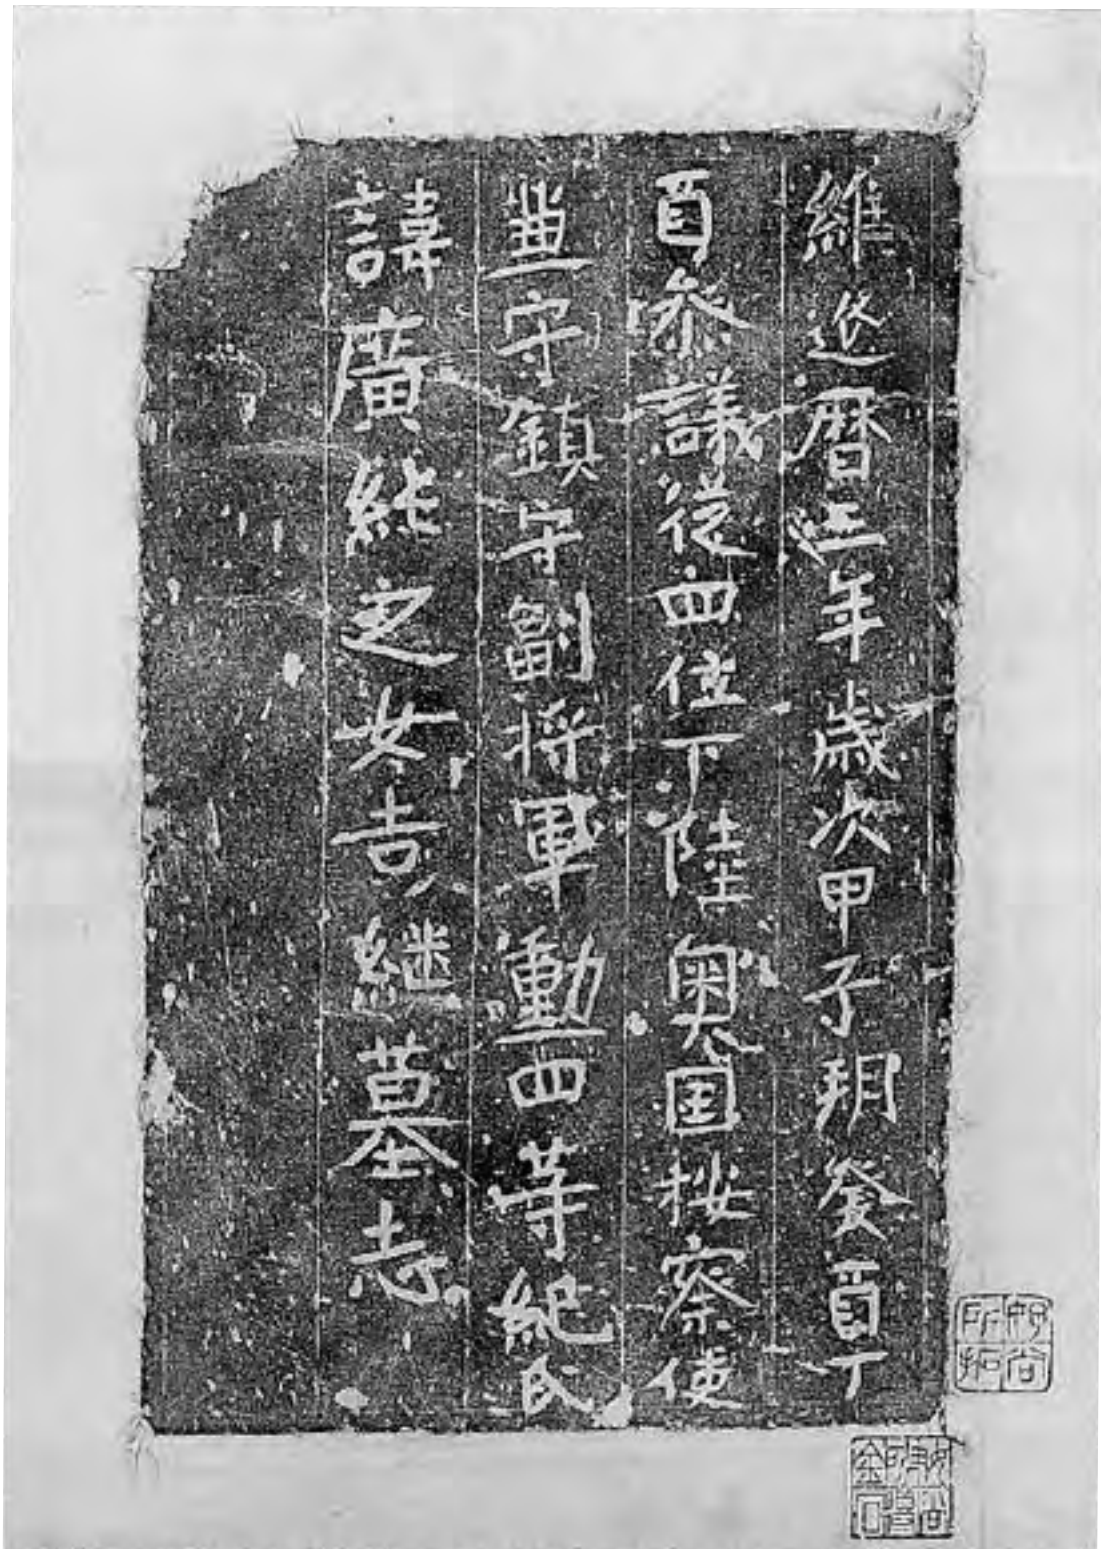 維延暦三年歳次甲子朔癸酉丁
酉参議従四位下陸奥国按察使
兼守鎮守副将軍勳四等紀氏
諱廣純之女吉継墓志